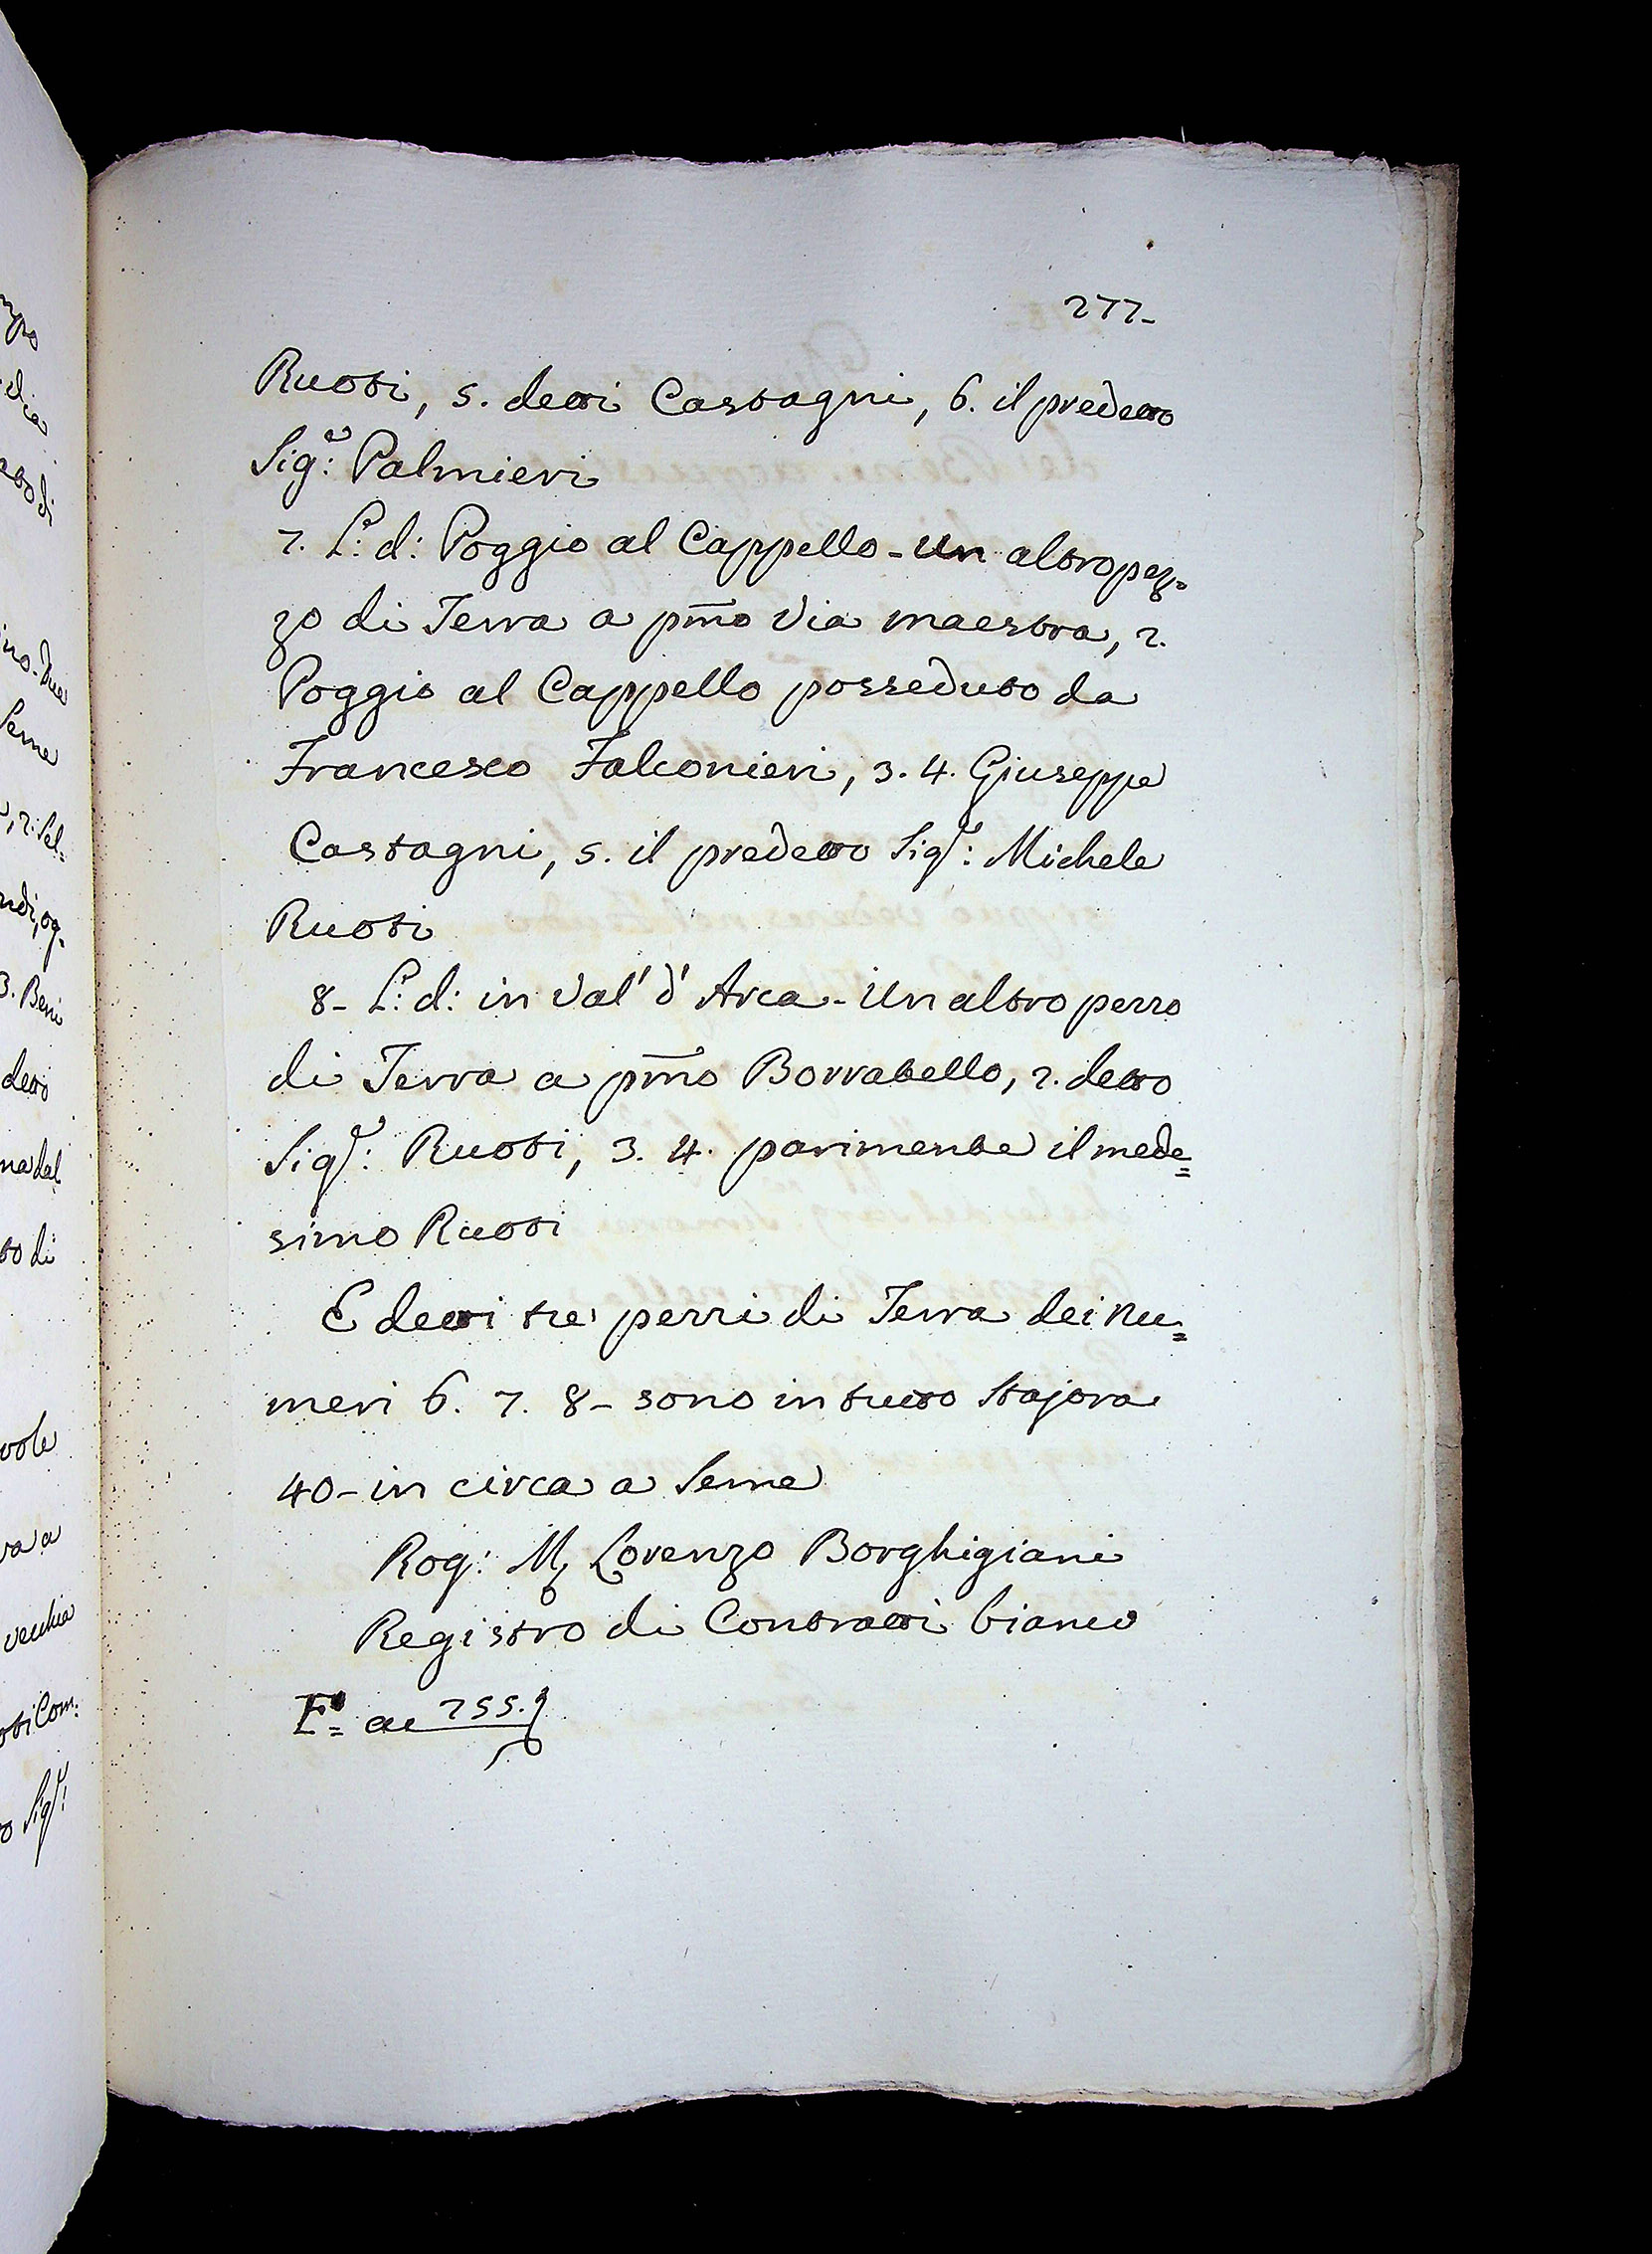 277-
Ruoti, 5. detti Castagni, 6. il predetto
Sig.e: Palmieri
7. L: d: Poggio al Cappello - Un altro pez-
zo di Terra a pmo Via maestra, 2.
Poggio al Cappello posseduto da
Francesco Falconieri, 3. 4. Giuseppe
Castagni, 5. il predetto Sig.e: Michele
Ruoti
8- L: d: in Val' d' Arca - Un altro pezzo
di Terra a pmo Borratello, 2. detto
Sig.e: Ruoti, 3. 4. parimente il mede=
simo Ruoti
E detti tre pezzi di Terra dei Nu=
meri 6. 7. 8- sono in tutto Stajora
40- in circa a Seme
Rog: M, Lorenzo Borghigiani
Registro di Contratti bianco
E= ac 255.